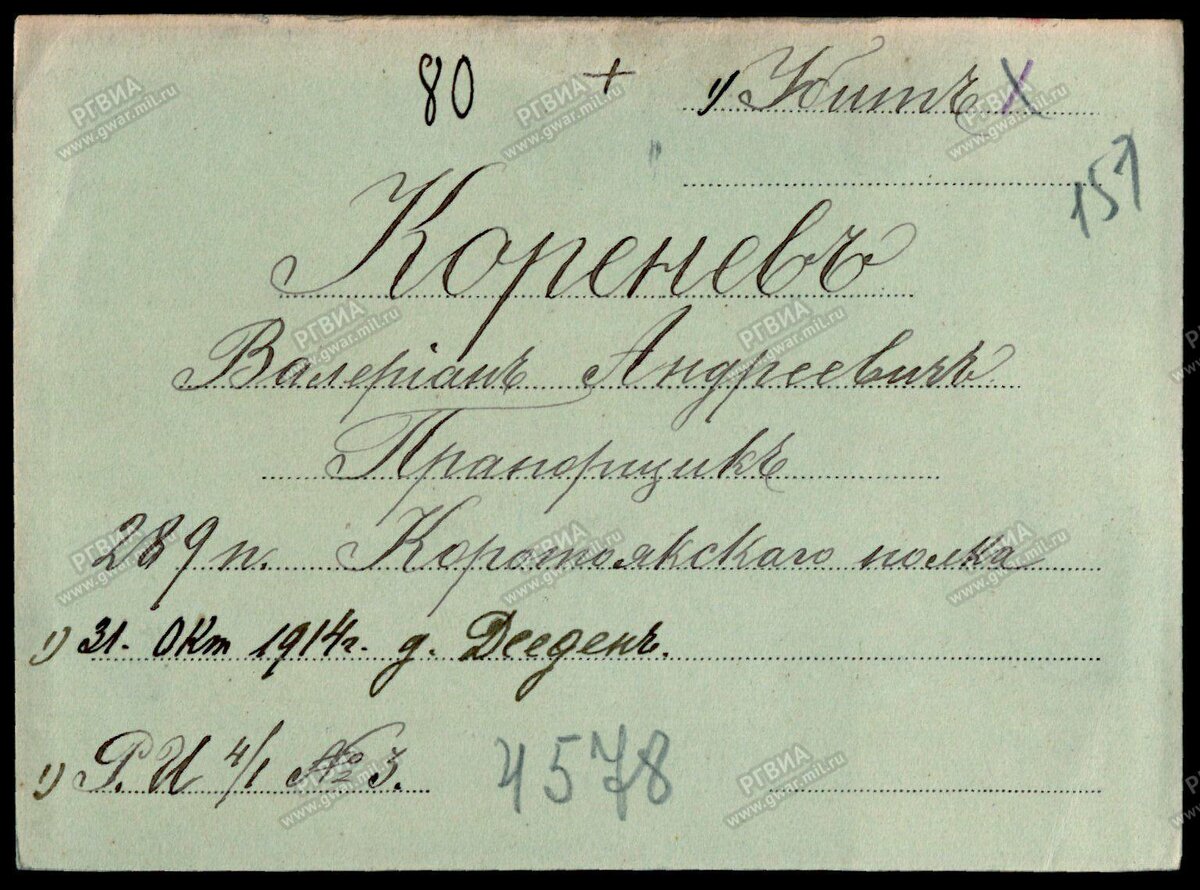 80 + 1) Убитъ X
157
Кореневъ
Валеріанъ Андреевичъ
Прапорщикъ
289 п. Коротоякскаго полка
1) 31. Окт 1914г. д. Дееденъ.
1) Р. И 4/1 № 3.
4578
РГВИА
www.gwar.mil.ru